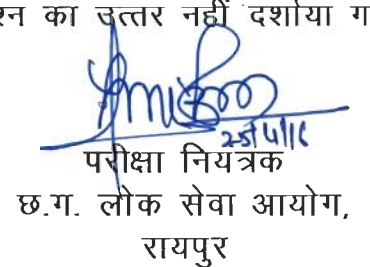 श्न का उत्तर नहीं दर्शाया ग
25/4/16
परीक्षा नियंत्रक
छ.ग. लोक सेवा आयोग,
रायपुर